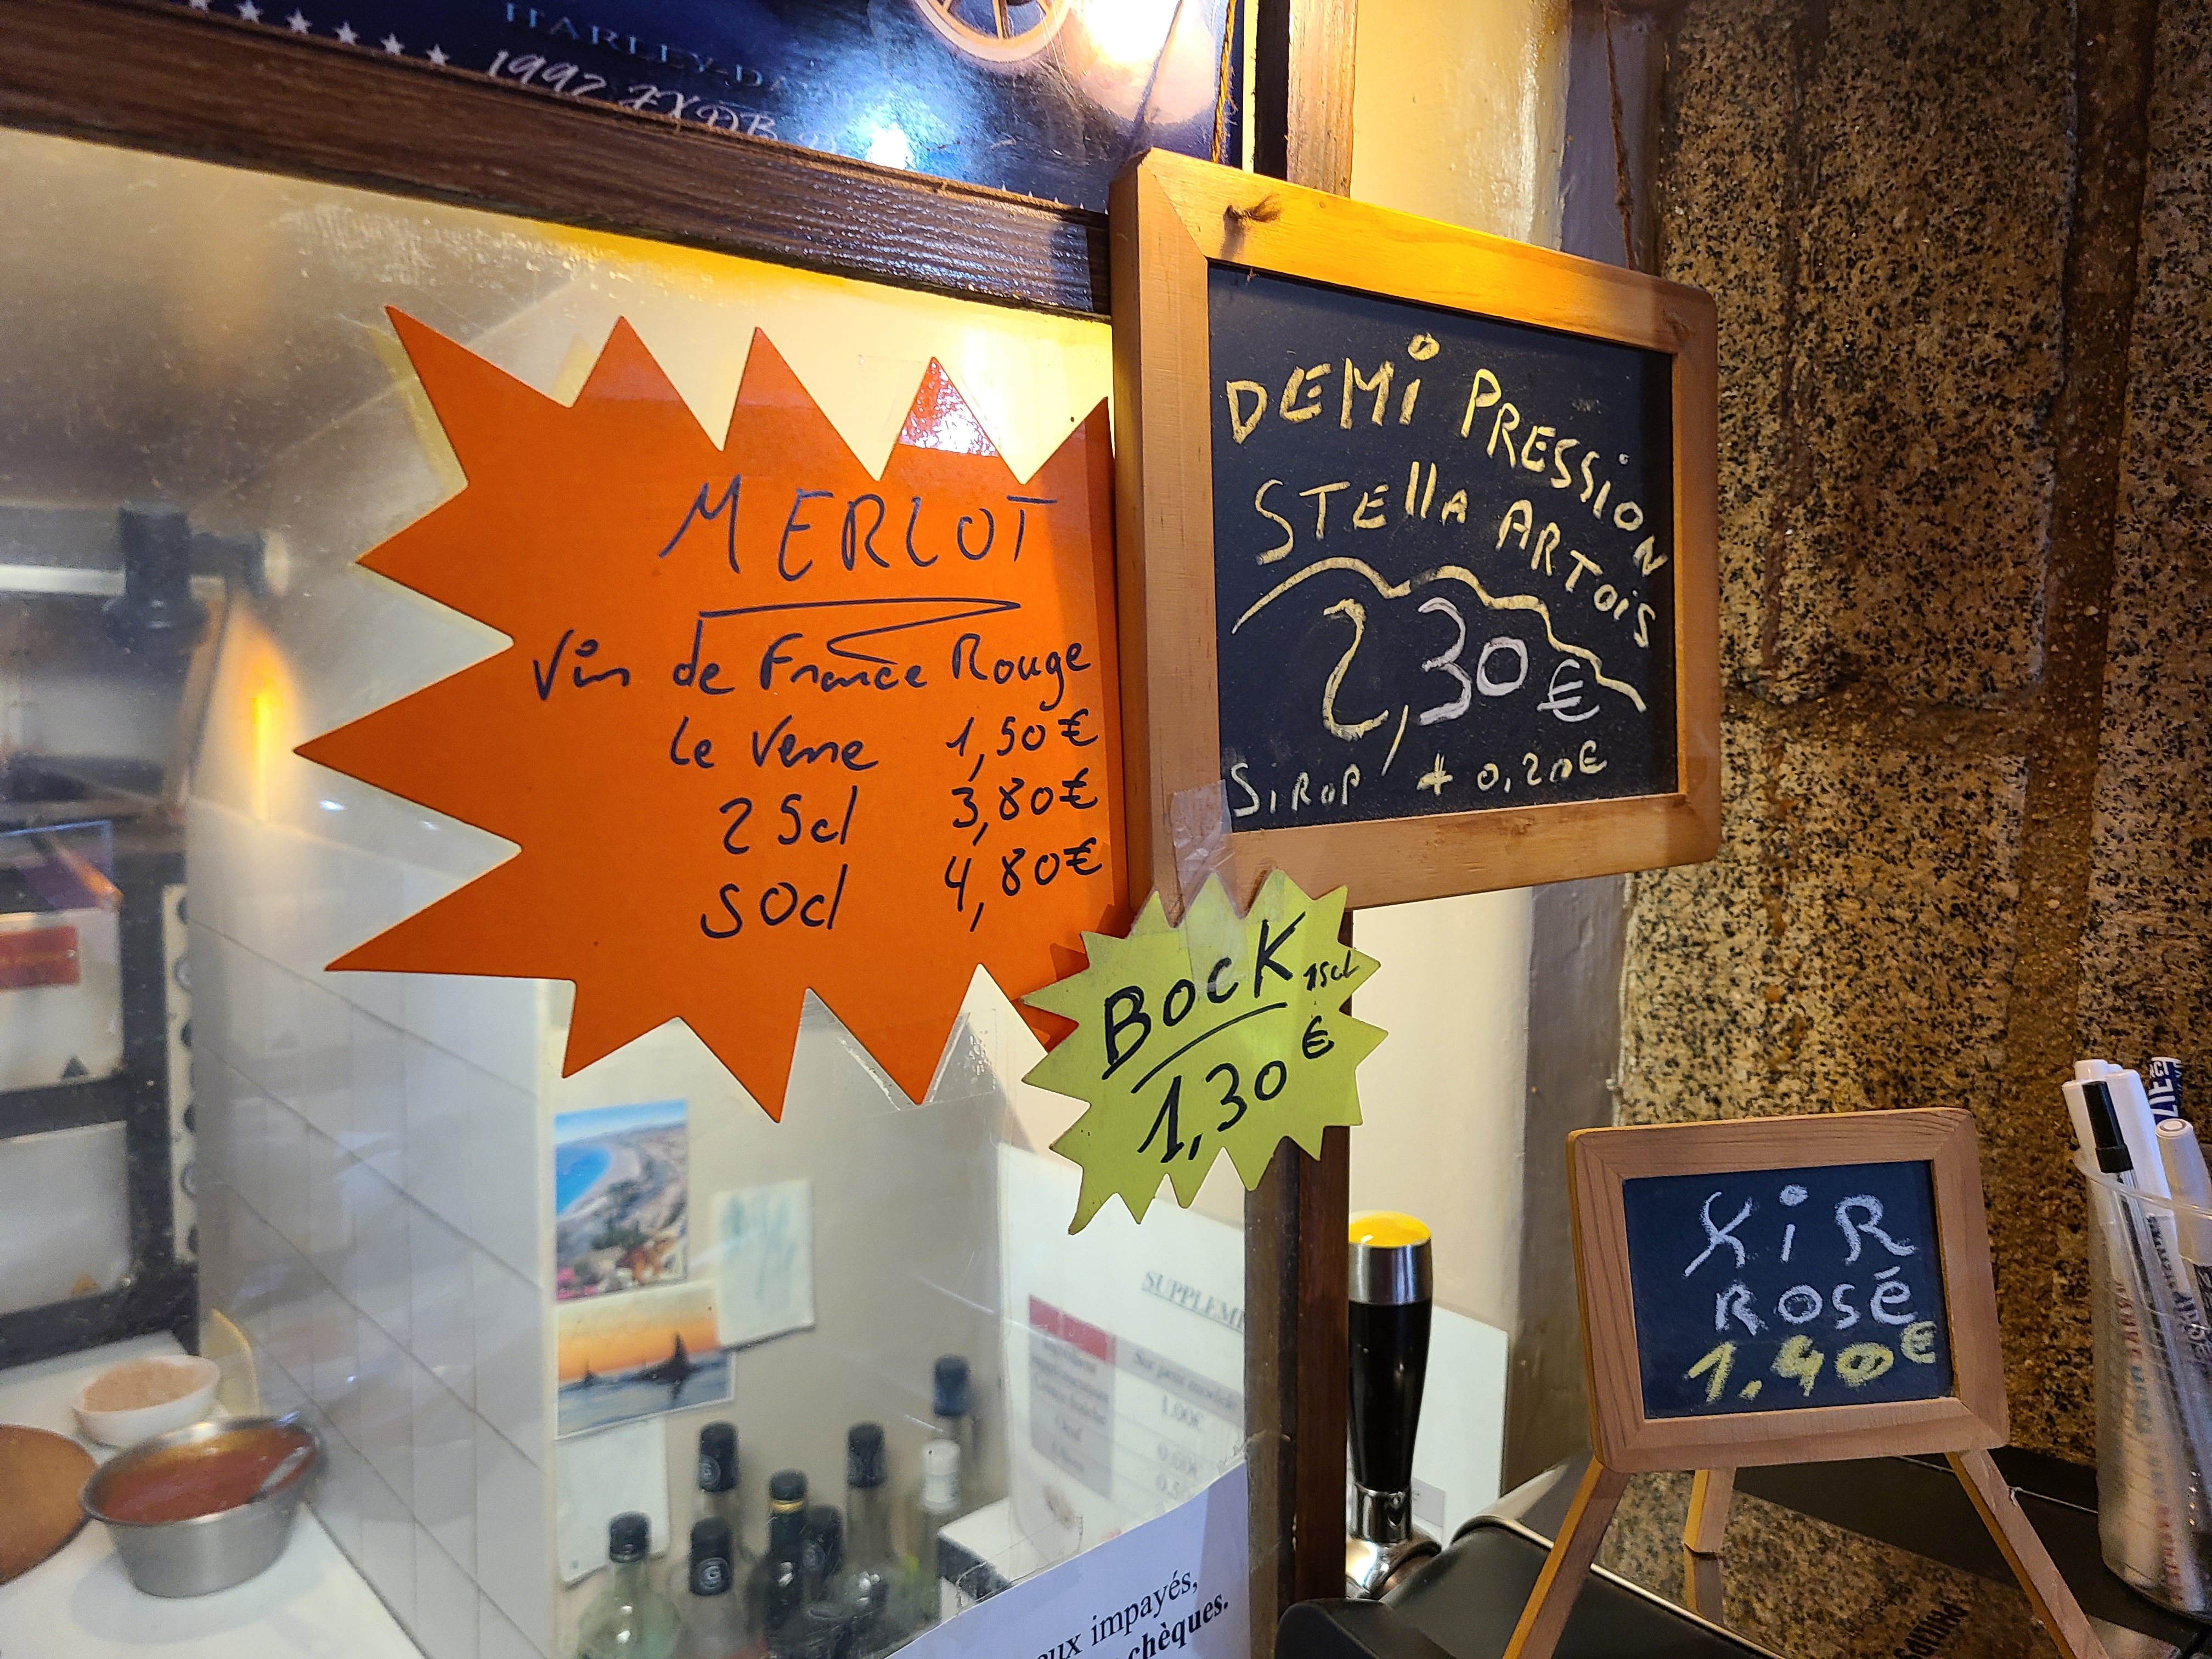 HARLEY-DA
1997 FXDB
MERLOT
Vin de France Rouge
le Verre 1,50€
25cl 3,80€
50cl 4,80€
DEMi PRESSiON
STEllA ARTOiS
2,30€
SiROP + 0,20€
BOCK 15cl
1,30€
KiR
ROSÉ
1.40€
SUPPLEM
1.00€
eux impayés,
chèques.